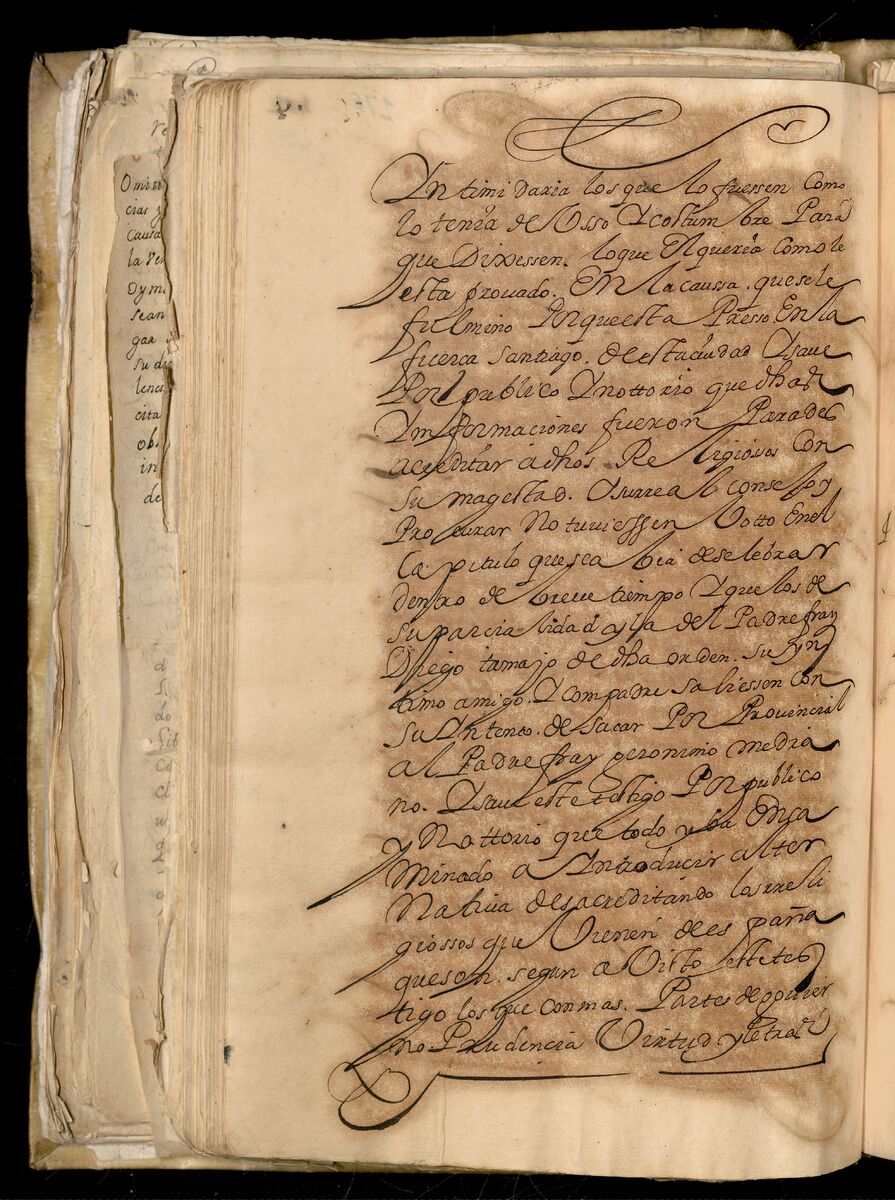 Omiti
cias y
causa
la ve
Oyme
sean
gar
su di
lenci
cita
ob
in
de
Yntimidaria los que lo fuessen Como
lo tenia de Usso Y costumbre Para
que Dixessen. loque El queria Comole
esta provado. En la caussa. quesele
fulmino Porquesta Presso En la
fuerça Santiago. de esta ciudad Y save
Por publico Y nottorio que dhas
Ymformaciones fueron Parades
acreditar a dhos Religiosos Con
Su magestad. Y su rreal consejo y
Procurar No tuviessen Votto En el
Capitulo que se abia de selebrar
dentro de breve tiempo Y que los de
su parcialidad y la del Padre fray
Diego tamajo de dha orden. su yn
timo amigo. Y compadre saliessen con
su Yntento. de sacar Por Provincial
al Padre fray geronimo media
no. Y save este testigo Por publico
y Nottorio que todo yba Enca
minado a Yntroducir alter
Nativa desacreditando los rreli
giossos que Vienen de espana
que son. segun a Visto este tes
tigo los que con mas. Partes de govier
no Prudencia Virtud y letras